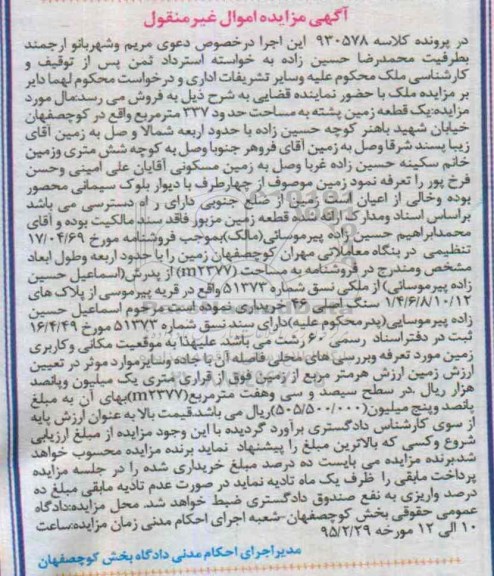 آگهی مزایده اموال غیرمنقول
در پرونده کلاسه ۹۳۰۵۷۸ این اجرا درخصوص دعوی مریم وشهربانو ارجمند
بطرفیت محمدرضا حسین زاده به خواسته استرداد ثمن پس از توقیف و
کارشناسی ملک محکوم علیه وسایر تشریفات اداری و درخواست محکوم لهما دایر
بر مزایده ملک با حضور نماینده قضایی به شرح ذیل به فروش می رسد:مال مورد
مزایده:یک قطعه زمین پشته به مساحت حدود ۳۳۷ مترمربع واقع در کوچصفهان
خیابان شهید باهنر کوچه حسین زاده با حدود اربعه شمالا و صل به زمین آقای
زیبا پسند شرقا وصل به زمین آقای فروهر جنوبا وصل به کوچه شش متری وزمین
خانم سکینه حسین زاده غربا وصل به زمین مسکونی آقایان علی امینی وحسن
فرخ پور را تعرفه نمود زمین موصوف از چهارطرف با دیوار بلوک سیمانی محصور
بوده وخالی از اعیان است زمین از ضلع جنوبی دارای ر اه دسترسی می باشد
براساس اسناد ومدارک ارائه شده قطعه زمین مزبور فاقد سند مالکیت بوده و آقای
محمدابراهیم حسین زاده پیرموسائی(مالک)بموجب فروشنامه مورخ ۱۷/۰۴/۶۹
تنظیمی در بنگاه معاملاتی مهران کوچصفهان زمین را با حدود اربعه وطول ابعاد
مشخص ومندرج در فروشنامه به مساحت (m۲۳۷۷) از پدرش(اسماعیل حسین
زاده پیرموسائی) از ملکی نسق شماره ۵۱۳۷۳ واقع در قریه پیرموسی از پلاک های
۱/۴/۶/۸/۱۰/۱۲ سنگ اصلی ۴۶ خریداری نموده است مرحوم اسماعیل حسین
زاده پیرموسایی(پدرمحکوم علیه)دارای سند نسق شماره ۵۱۳۷۳ مورخ ۱۶/۴/۴۹
ثبت در دفتراسناد رسمی ۶۰ رشت می باشد علیهذا به موقعیت مکانی وکاربری
زمین مورد تعرفه وبررسی های محلی فاصله آن با جاده وسایرموارد موثر در تعیین
ارزش زمین ارزش هرمتر مربع از زمین فوق از قراری متری یک میلیون وپانصد
هزار ریال ،در سطح سیصد و سی وهفت مترمربع(m۲۳۷۷)بهای آن به مبلغ
پانصد وپنج میلیون(۵۰۵/۵۰۰/۰۰۰)ریال می باشد.قیمت بالا به عنوان ارزش پایه
از سوی کارشناس دادگستری برآورد گردیده با این وجود مزایده از مبلغ ارزیابی
شروع وکسی که بالاترین مبلغ را پیشنهاد نماید برنده مزایده محسوب خواهد
شدبرنده مزایده می بایست ده درصد مبلغ خریداری شده را در جلسه مزایده
پرداخت مابقی را ظرف یک ماه تادیه نماید در صورت عدم تادیه مابقی مبلغ ده
درصد واریزی به نفع صندوق دادگستری ضبط خواهد شد. محل مزایده:دادگاه
عمومی حقوقی بخش کوچصفهان-شعبه اجرای احکام مدنی زمان مزایده:ساعت
۱۰ الی ۱۲ مورخه ۹۵/۲/۲۹
مدیراجرای احکام مدنی دادگاه بخش کوچصفهان